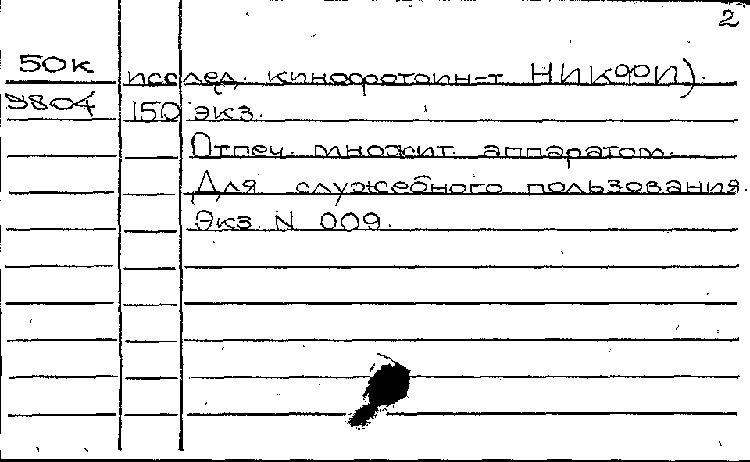 2
50к исслед. кинофотоин-т НИКФИ).
9804 150 экз.
Отпеч. множит. аппаратом.
Для служебного пользования.
Экз. N 009.